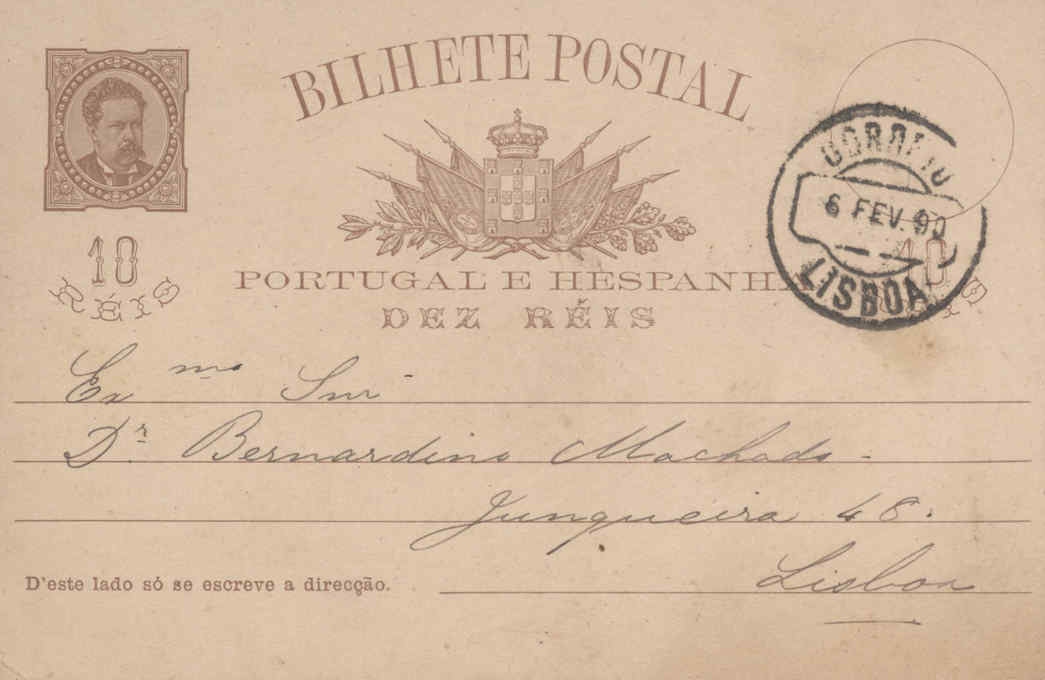 BILHETE POSTAL
10
RÉIS
PORTUGAL E HESPANH
DEZ RÉIS
CORREIO
6 FEV. 90
LISBOA
10
IS
Exmo Snr
Dr. Bernardino Machado -
Junqueira 48.
D'este lado só se escreve a direcção.
Lisboa